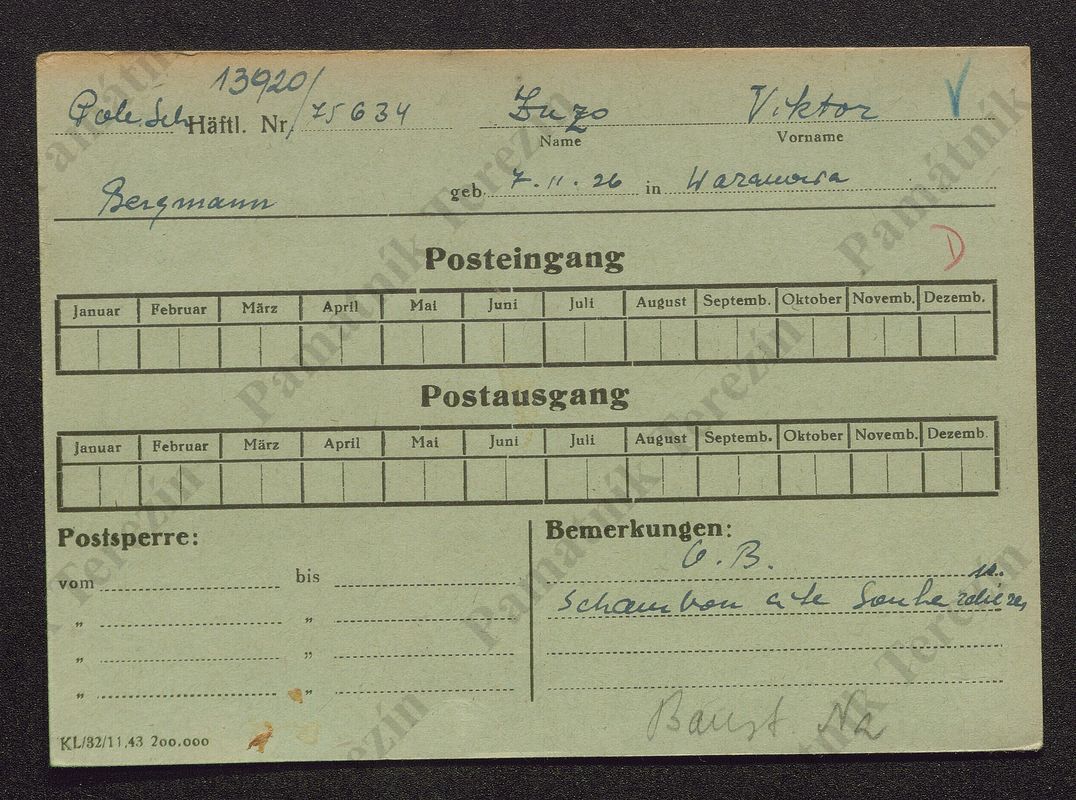 13920/
Häftl. Nr. 75634 Viktor
Name Vorname
Bergmann geb. 7.11.26 in
Posteingang
D
Januar Februar März April Mai Juni Juli August Septemb. Oktober Novemb. Dezemb.
Postausgang
Januar Februar März April Mai Juni Juli August Septemb. Oktober Novemb. Dezemb.
Postsperre: Bemerkungen:
vom bis
" "
" "
" "
KL/32/11.43 200.000
Památník Terezín